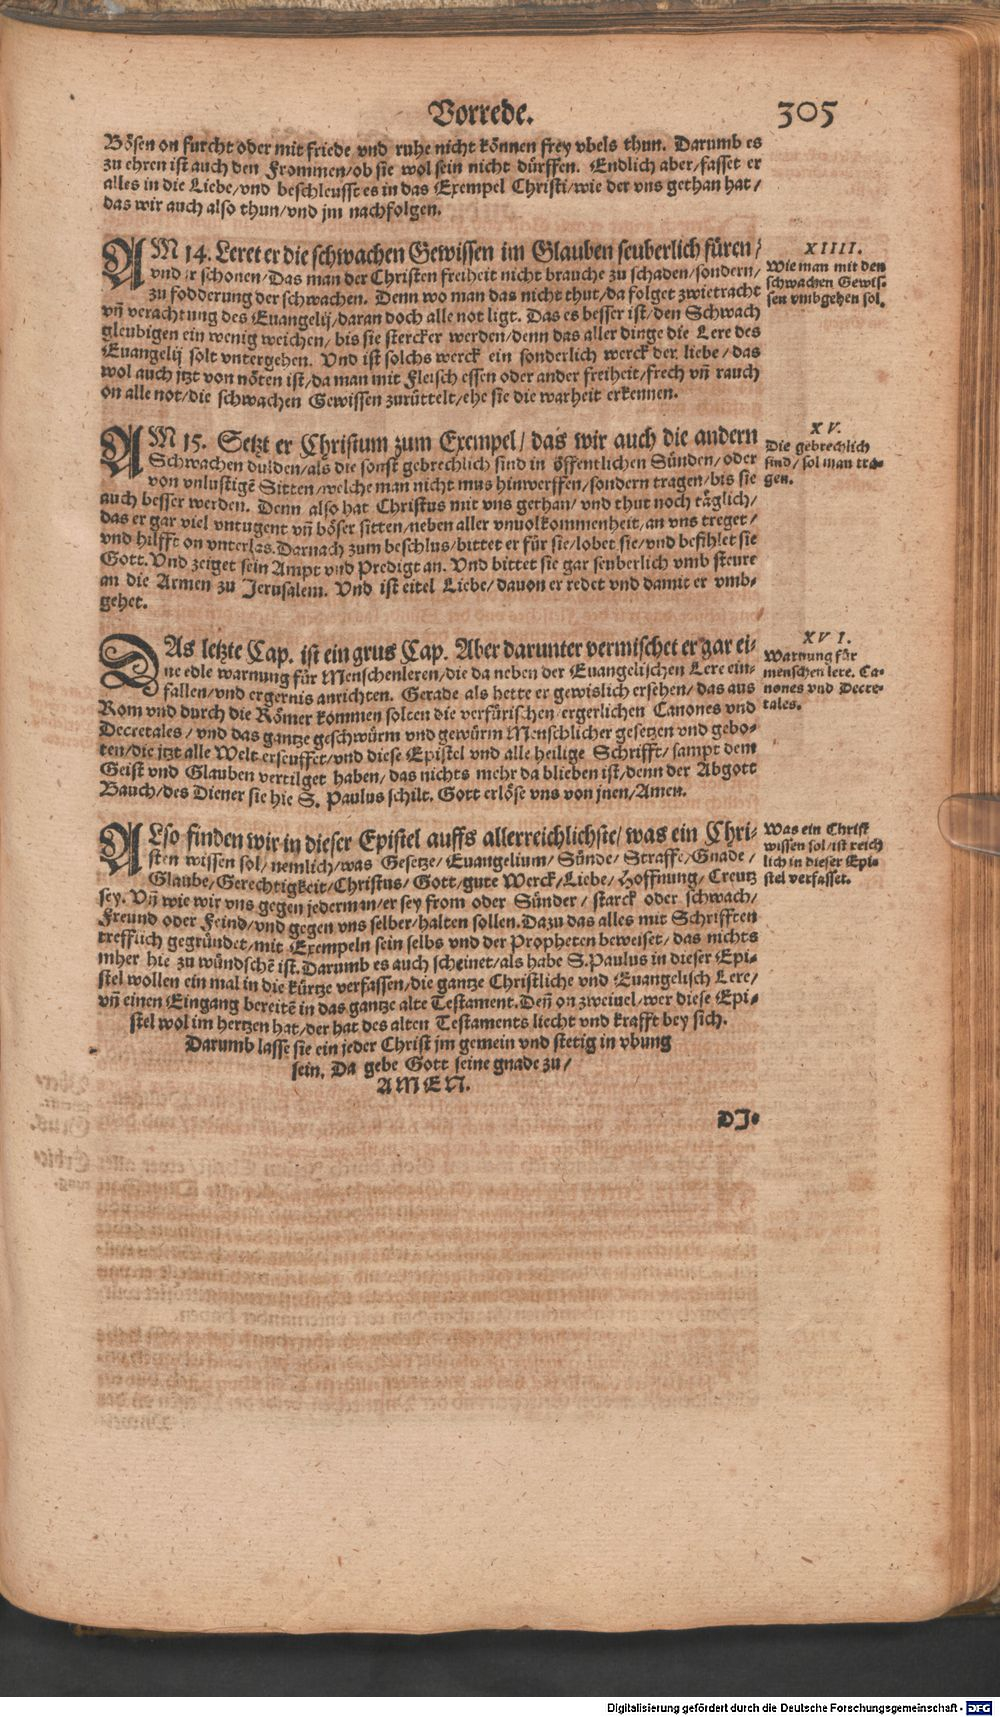 Vorrede. 305
Bösen on furcht oder mit friede vnd ruhe nicht können frey vbels thun. Darumb es
zu ehren ist auch den Frommen/ob sie wol sein nicht dürffen. Endlich aber/fasset er
alles in die Liebe/vnd beschleusst es in das Exempel Christi/wie der vns gethan hat/
das wir auch also thun/vnd jm nachfolgen.
AM 14. Leret er die schwachen Gewissen im Glauben seuberlich füren/
vnd jr schonen/Das man der Christen freiheit nicht brauche zu schaden/sondern/
zu fodderung der schwachen. Denn wo man das nicht thut/da folget zwietracht
vñ verachtung des Euangelij/daran doch alle not ligt. Das es besser ist/den Schwach
gleubigen ein wenig weichen/bis sie stercker werden/denn das aller dinge die Lere des
Euangelij solt vntergehen. Vnd ist solchs werck ein sonderlich werck der liebe/das
wol auch jtzt von nöten ist/da man mit Fleisch essen oder ander freiheit/frech vñ rauch
on alle not/die schwachen Gewissen zurüttelt/ehe sie die warheit erkennen.
XIIII.
Wie man mit den
schwachen Gewis-
sen vmbgehen sol.
AM 15. Setzt er Christum zum Exempel/das wir auch die andern
Schwachen dulden/als die sonst gebrechlich sind in öffentlichen Sünden/oder
von vnlustigē Sitten/welche man nicht mus hinwerffen/sondern tragen/bis sie
auch besser werden. Denn also hat Christus mit vns gethan/vnd thut noch täglich/
das er gar viel vntugent vñ böser sitten/neben aller vnuolkommenheit/an vns treget/
vnd hilfft on vnterlas. Darnach zum beschlus/bittet er für sie/lobet sie/vnd befihlet sie
Gott. Vnd zeiget sein Ampt vnd Predigt an. Vnd bittet sie gar seuberlich vmb steure
an die Armen zu Jerusalem. Vnd ist eitel Liebe/dauon er redet vnd damit er vmb-
gehet.
XV.
Die gebrechlich
sind/sol man tra-
gen.
DAs letzte Cap. ist ein grus Cap. Aber darunter vermischet er gar ei-
ne edle warnung für Menschenleren/die da neben der Euangelischen Lere ein-
fallen/vnd ergernis anrichten. Gerade als hette er gewislich ersehen/das aus
Rom vnd durch die Römer kommen solten die verfürischen ergerlichen Canones vnd
Decretales/vnd das gantze geschwürm vnd gewürm Menschlicher gesetzen vnd gebo-
ten/die jtzt alle Welt erseuffet/vnd diese Epistel vnd alle heilige Schrifft/sampt dem
Geist vnd Glauben vertilget haben/das nichts mehr da blieben ist/denn der Abgott
Bauch/des Diener sie hie S. Paulus schilt. Gott erlöse vns von jnen/Amen.
XVI.
Warnung für
menschen lere. Ca-
nones vnd Decre-
tales.
ALso finden wir in dieser Epistel auffs allerreichlichste/was ein Chri-
sten wissen sol/nemlich/was Gesetze/Euangelium/Sünde/Straffe/Gnade/
Glaube/Gerechtigkeit/Christus/Gott/gute Werck/Liebe/Hoffnung/Creutz
sey. Vñ wie wir vns gegen jederman/er sey from oder Sünder/starck oder schwach/
Freund oder Feind/vnd gegen vns selber/halten sollen. Dazu das alles mit Schrifften
trefflich gegründet/mit Exempeln sein selbs vnd der Propheten beweiset/das nichts
mher hie zu wündschē ist. Darumb es auch scheinet/als habe S. Paulus in dieser Epi-
stel wollen ein mal in die kürtze verfassen/die gantze Christliche vnd Euangelisch Lere/
vñ einen Eingang bereitē in das gantze alte Testament. Deñ on zweiuel/wer diese Epi-
stel wol im hertzen hat/der hat des alten Testaments liecht vnd krafft bey sich.
Darumb lasse sie ein jeder Christ jm gemein vnd stetig in vbung
sein. Da gebe Gott seine gnade zu/
AMEN.
Was ein Christ
wissen sol/ist reich
lich in dieser Epi-
stel verfasset.
DJ-
Digitalisierung gefördert durch die Deutsche Forschungsgemeinschaft - DFG